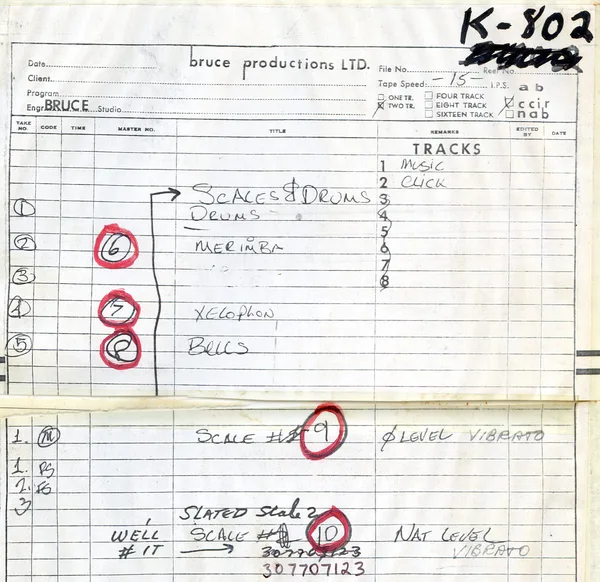 K-802
bruce productions LTD.
Date
Client
Program
Engr. BRUCE Studio
File No. Reel No.
Tape Speed: -15- I.P.S. a b
ONE TR. FOUR TRACK
TWO TR. EIGHT TRACK ccir
SIXTEEN TRACK nab
TAKE NO. CODE TIME MASTER NO. TITLE REMARKS EDITED BY DATE
TRACKS
1 MUSIC
2 CLICK
3
4
5
6
7
8
SCALES & DRUMS
1 DRUMS
2 6 MERIMBA
3
4 7 XELOPHON
5 8 BELLS
1. M SCALE # 9 ϕ LEVEL VIBRATO
1. PS
2. FS
3
SLATED Scale 2
WE'LL SCALE # 10 NAT LEVEL
# IT VIBRATO
307707123
307707123